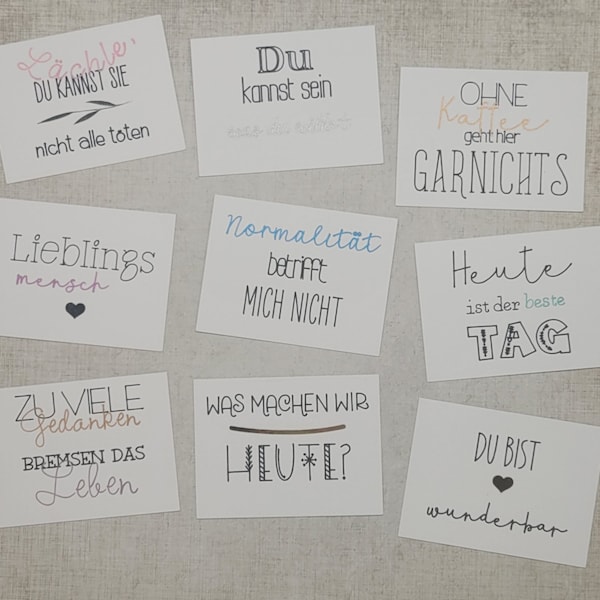 Lächle,
DU KANNST SIE
nicht alle töten
Du
kannst sein
was du willst
OHNE
Kaffee
geht hier
GARNICHTS
Lieblings
mensch
Normalität
betrifft
MICH NICHT
Heute
ist der beste
TAG
ZU VIELE
Gedanken
BREMSEN DAS
Leben
WAS MACHEN WIR
HEUTE?
DU BIST
wunderbar